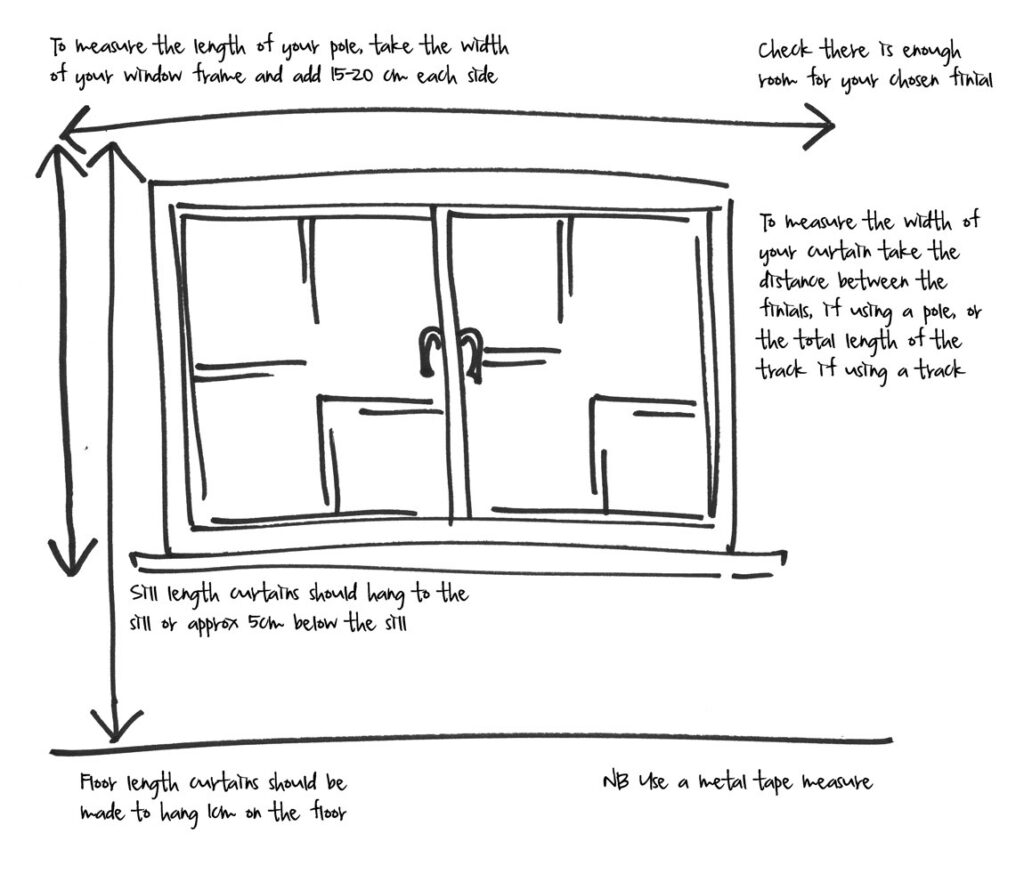 To measure the length of your pole, take the width
of your window frame and add 15-20 cm each side
Check there is enough
room for your chosen finial
To measure the width of
your curtain take the
distance between the
finials, if using a pole, or
the total length of the
track if using a track
Sill length curtains should hang to the
sill or approx 5cm below the sill
Floor length curtains should be
made to hang 1cm on the floor
NB Use a metal tape measure